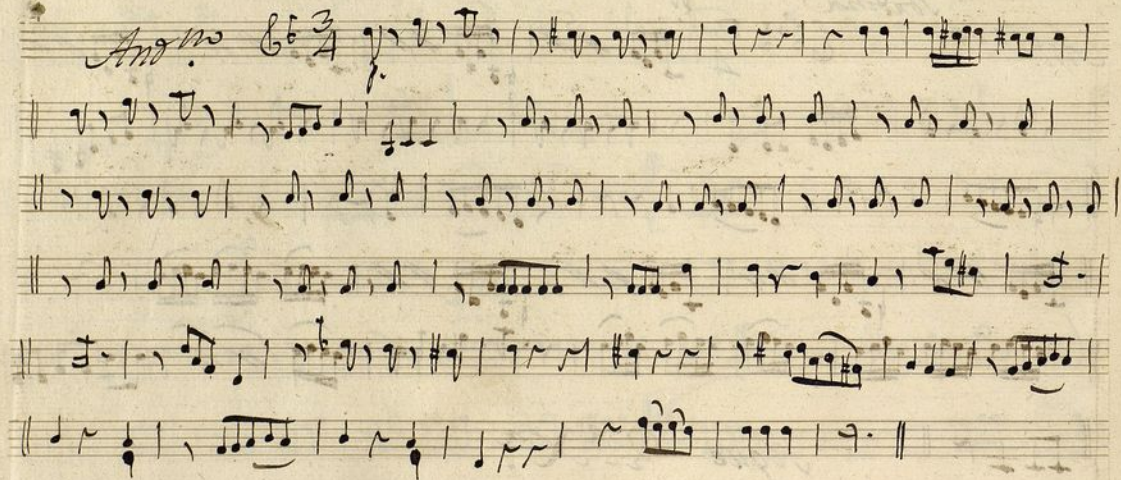 And.no 3/4
p.